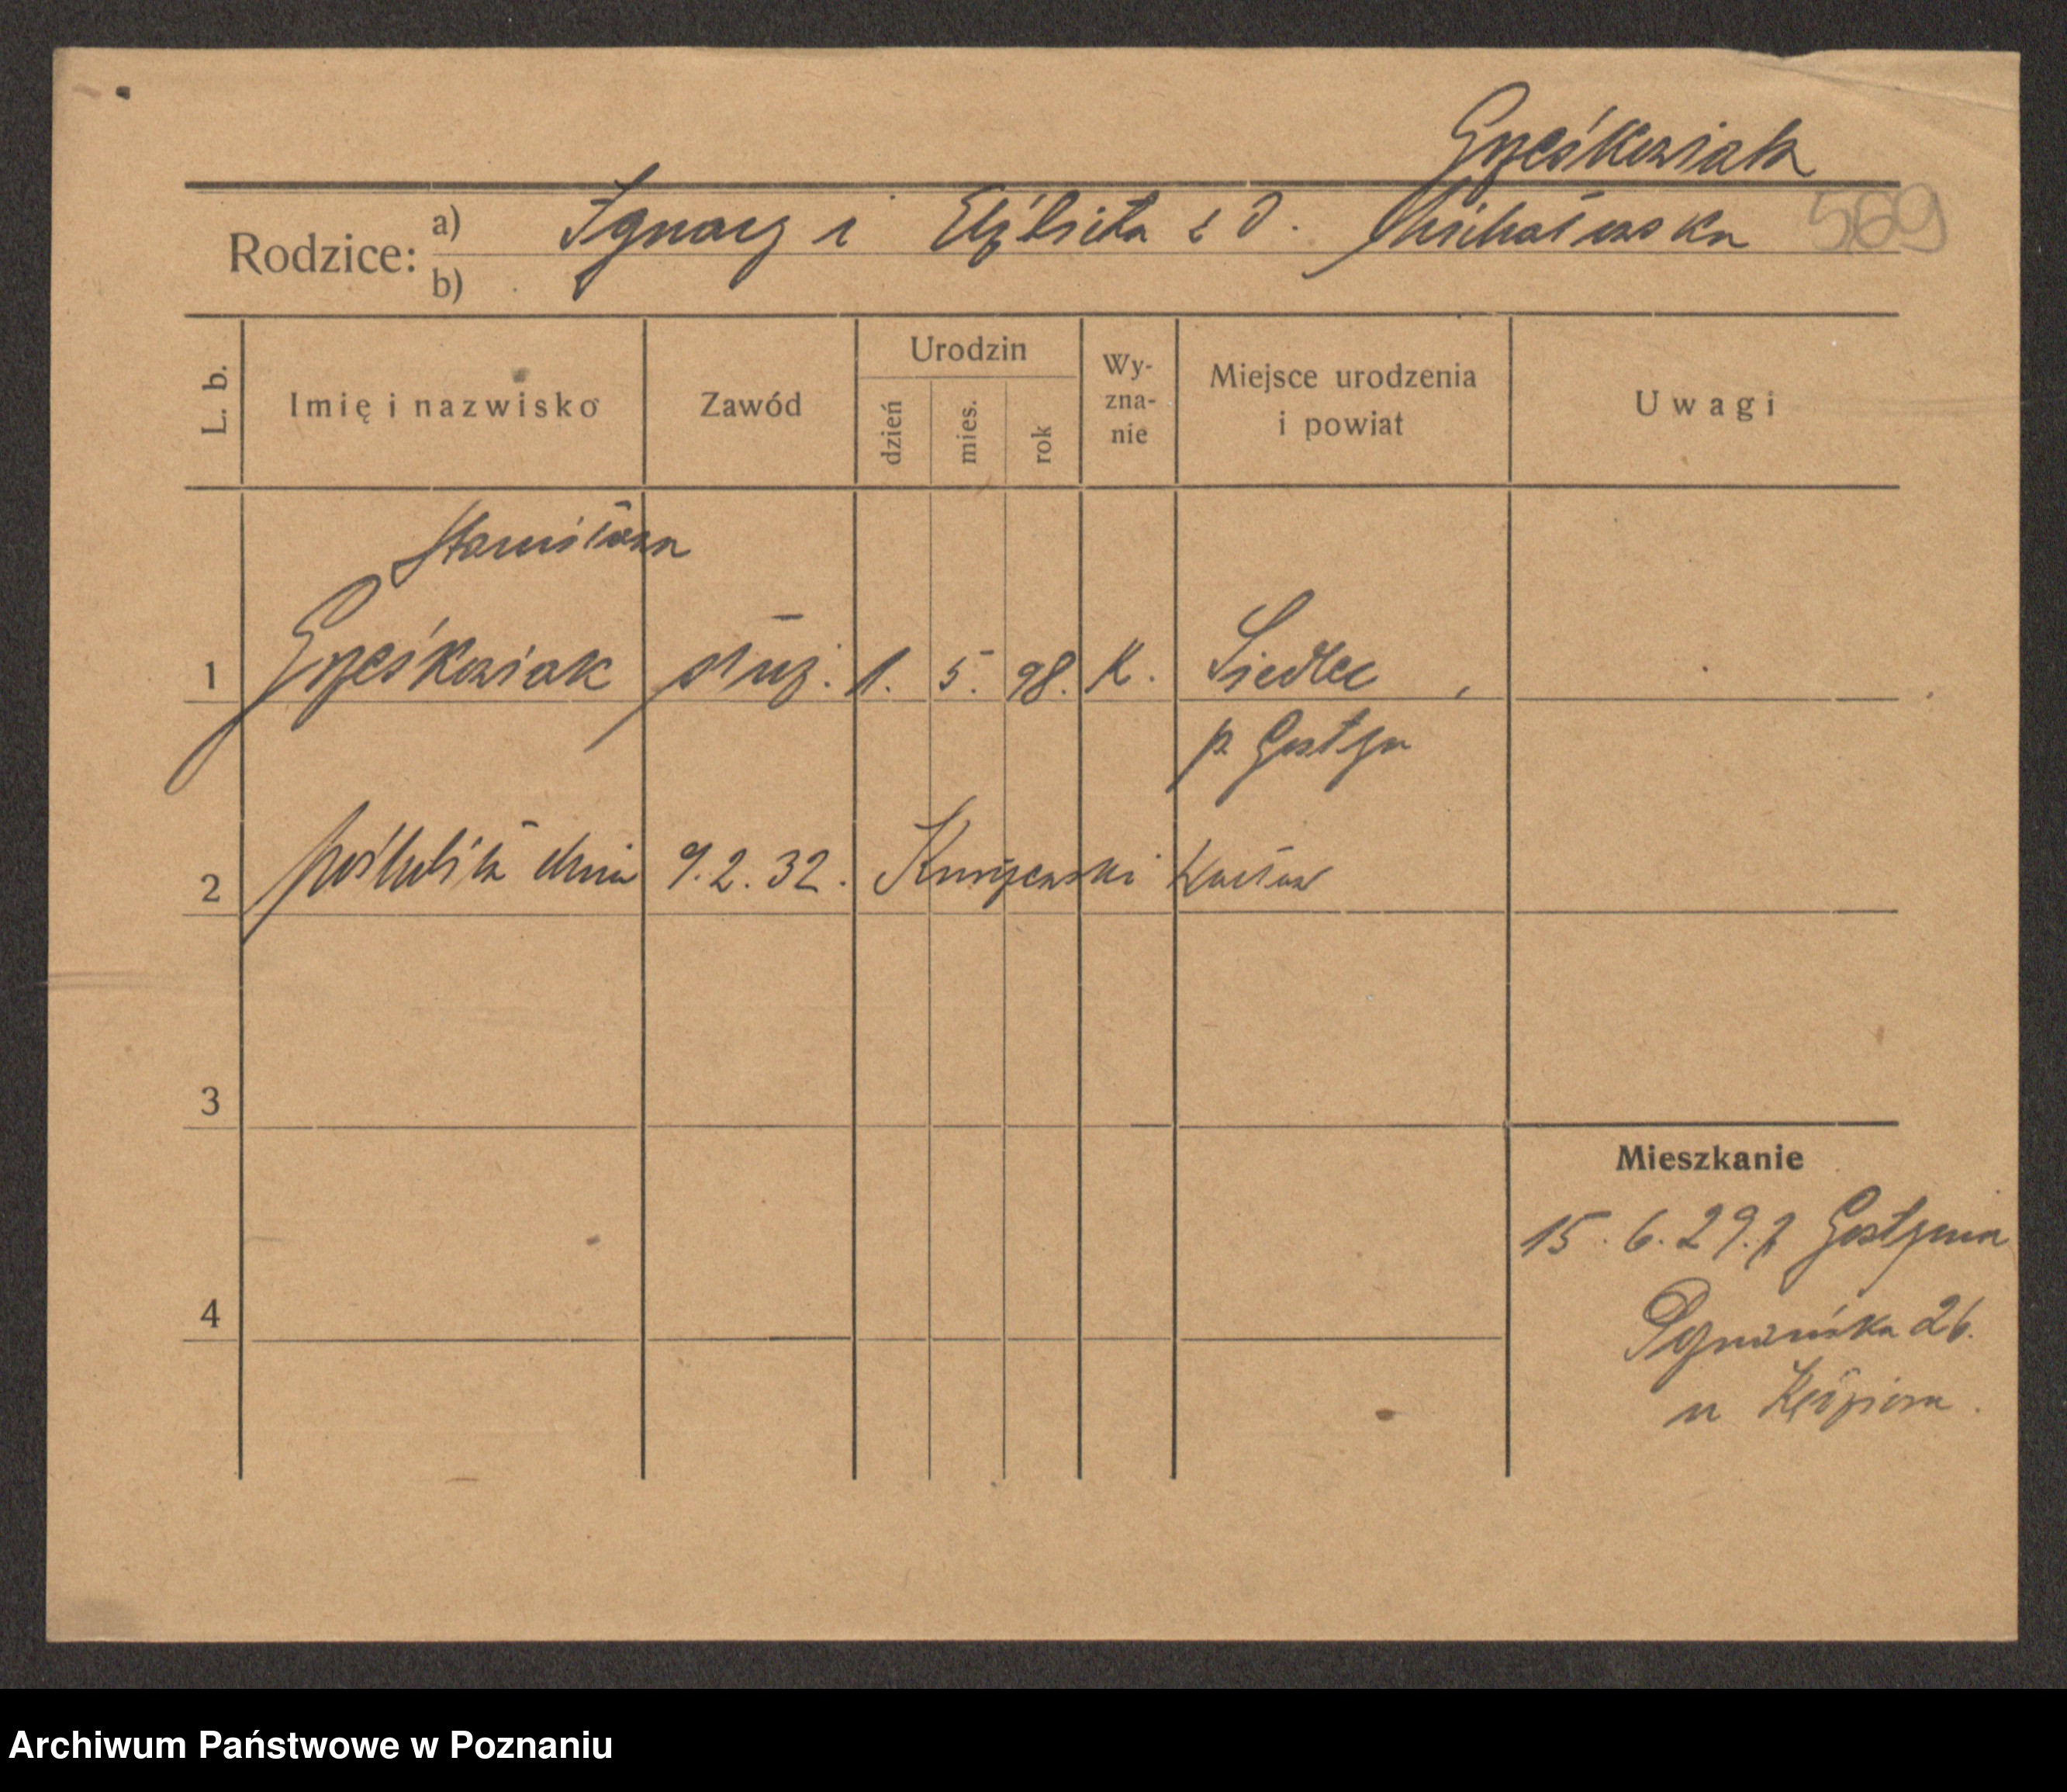 Grześkowiak
Rodzice: a) Ignacy i Elżbieta z d. Michałowska 569
b)
L. b. Imię i nazwisko Zawód Urodzin dzień mies. rok Wy-zna-nie Miejsce urodzenia i powiat Uwagi
Stanisława
1 Grześkowiak służ. 1. 5. 98. K. Siedlec
p. Gostyń
2 poślubiła dnia 9.2.32. Wacław
3
Mieszkanie
15.6.29. z Gostynia
4
Poznańska 26.
u
Archiwum Państwowe w Poznaniu